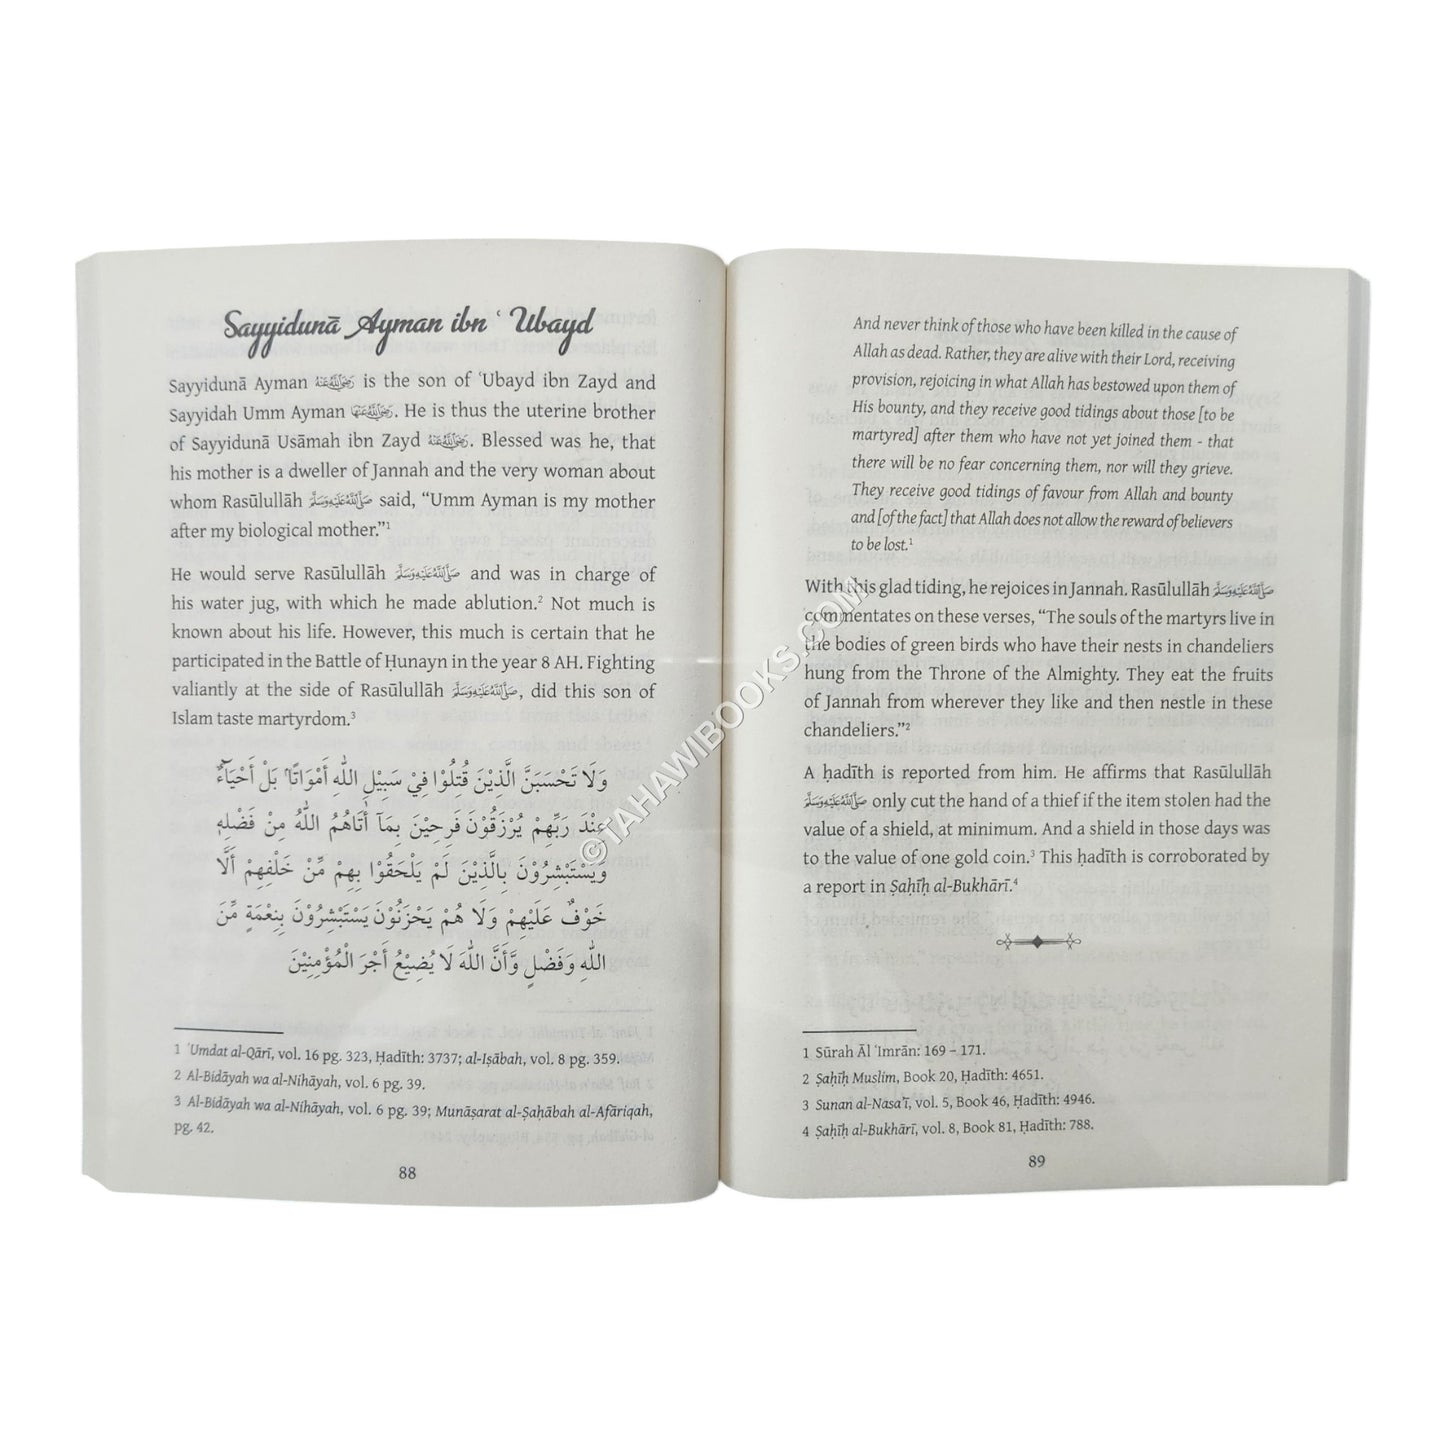 Sayyidunā Ayman ibn ʿUbayd
Sayyidunā Ayman رَضِيَ اللَّهُ عَنْهُ is the son of ʿUbayd ibn Zayd and
Sayyidah Umm Ayman رَضِيَ اللَّهُ عَنْهَا. He is thus the uterine brother
of Sayyidunā Usāmah ibn Zayd رَضِيَ اللَّهُ عَنْهُ. Blessed was he, that
his mother is a dweller of Jannah and the very woman about
whom Rasūlullāh صَلَّى اللَّهُ عَلَيْهِ وَسَلَّمَ said, “Umm Ayman is my mother
after my biological mother.”1
He would serve Rasūlullāh صَلَّى اللَّهُ عَلَيْهِ وَسَلَّمَ and was in charge of
his water jug, with which he made ablution.2 Not much is
known about his life. However, this much is certain that he
participated in the Battle of Ḥunayn in the year 8 AH. Fighting
valiantly at the side of Rasūlullāh صَلَّى اللَّهُ عَلَيْهِ وَسَلَّمَ, did this son of
Islam taste martyrdom.3
وَلَا تَحْسَبَنَّ الَّذِيْنَ قُتِلُوْا فِيْ سَبِيْلِ اللّٰهِ أَمْوَاتًا ۚ بَلْ أَحْيَآءٌ
عِنْدَ رَبِّهِمْ يُرْزَقُوْنَ فَرِحِيْنَ بِمَآ أٰتَاهُمُ اللّٰهُ مِنْ فَضْلِهٖ
وَيَسْتَبْشِرُوْنَ بِالَّذِيْنَ لَمْ يَلْحَقُوْا بِهِمْ مِّنْ خَلْفِهِمْ أَلَّا
خَوْفٌ عَلَيْهِمْ وَلَا هُمْ يَحْزَنُوْنَ يَسْتَبْشِرُوْنَ بِنِعْمَةٍ مِّنَ
اللّٰهِ وَفَضْلٍ وَّأَنَّ اللّٰهَ لَا يُضِيْعُ أَجْرَ الْمُؤْمِنِيْنَ
1 ʿUmdat al-Qārī, vol. 16 pg. 323, Ḥadīth: 3737; al-Iṣābah, vol. 8 pg. 359.
2 Al-Bidāyah wa al-Nihāyah, vol. 6 pg. 39.
3 Al-Bidāyah wa al-Nihāyah, vol. 6 pg. 39; Munāṣarat al-Ṣaḥābah al-Afāriqah,
pg. 42.
88
And never think of those who have been killed in the cause of
Allah as dead. Rather, they are alive with their Lord, receiving
provision, rejoicing in what Allah has bestowed upon them of
His bounty, and they receive good tidings about those [to be
martyred] after them who have not yet joined them - that
there will be no fear concerning them, nor will they grieve.
They receive good tidings of favour from Allah and bounty
and [of the fact] that Allah does not allow the reward of believers
to be lost.1
With this glad tiding, he rejoices in Jannah. Rasūlullāh صَلَّى اللَّهُ عَلَيْهِ وَسَلَّمَ
commentates on these verses, “The souls of the martyrs live in
the bodies of green birds who have their nests in chandeliers
hung from the Throne of the Almighty. They eat the fruits
of Jannah from wherever they like and then nestle in these
chandeliers.”2
A ḥadīth is reported from him. He affirms that Rasūlullāh
صَلَّى اللَّهُ عَلَيْهِ وَسَلَّمَ only cut the hand of a thief if the item stolen had the
value of a shield, at minimum. And a shield in those days was
to the value of one gold coin.3 This ḥadīth is corroborated by
a report in Ṣaḥīḥ al-Bukhārī.4
1 Sūrah Āl ʿImrān: 169 – 171.
2 Ṣaḥīḥ Muslim, Book 20, Ḥadīth: 4651.
3 Sunan al-Nasaʾī, vol. 5, Book 46, Ḥadīth: 4946.
4 Ṣaḥīḥ al-Bukhārī, vol. 8, Book 81, Ḥadīth: 788.
89
©TAHAWIBOOKS.COM